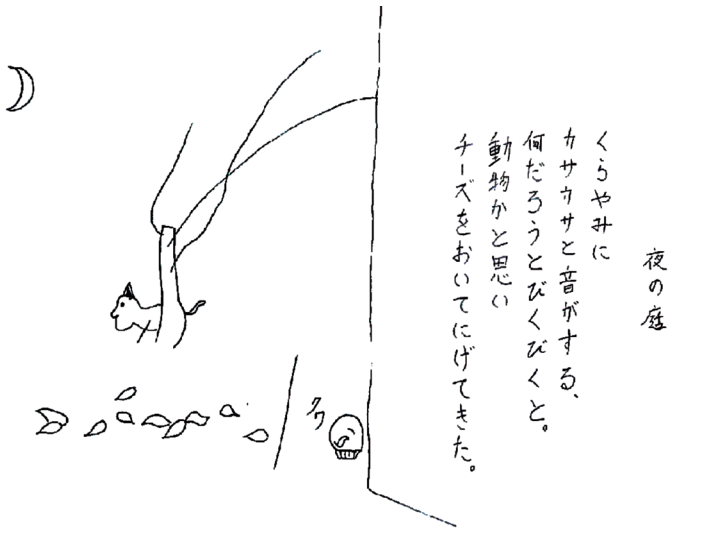 夜の庭
くらやみに
カサカサと音がする、
何だろうとびくびくと。
動物かと思い
チーズをおいてにげてきた。
クワ